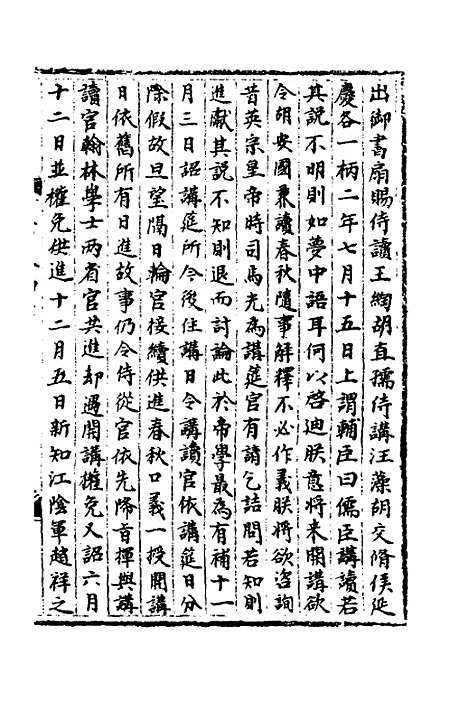 出御書扇賜侍讀王綯胡直孺侍講汪藻胡交脩侯延
慶各一柄二年七月十五日上謂輔臣曰儒臣講讀若
其說不明則如夢中語耳何以啓迪朕意將来開講欲
令胡安國兼讀春秋隨事解釋不必作義朕將欲咨詢
昔英宗皇帝時司馬光為講筵官有請乞詰問若知則
進獻其說不知則退而討論此於帝學最為有補十一
月三日詔講筵所今後住講日令講讀官依講筵日分
除假故旦望隔日輪官接續供進春秋口義一授開講
日依舊所有日進故事仍令侍從官依先降旨揮與講
讀官翰林學士兩省官共進却遇開講權免又詔六月
十二日並權免供進十二月五日新知江陰軍趙祥之